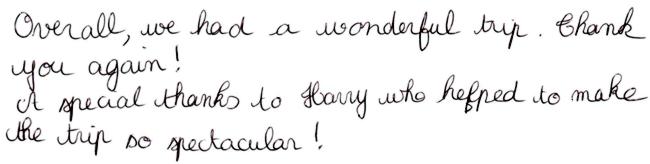 Overall, we had a wonderful trip. Thank
you again!
A special thanks to Harry who helped to make
the trip so spectacular!